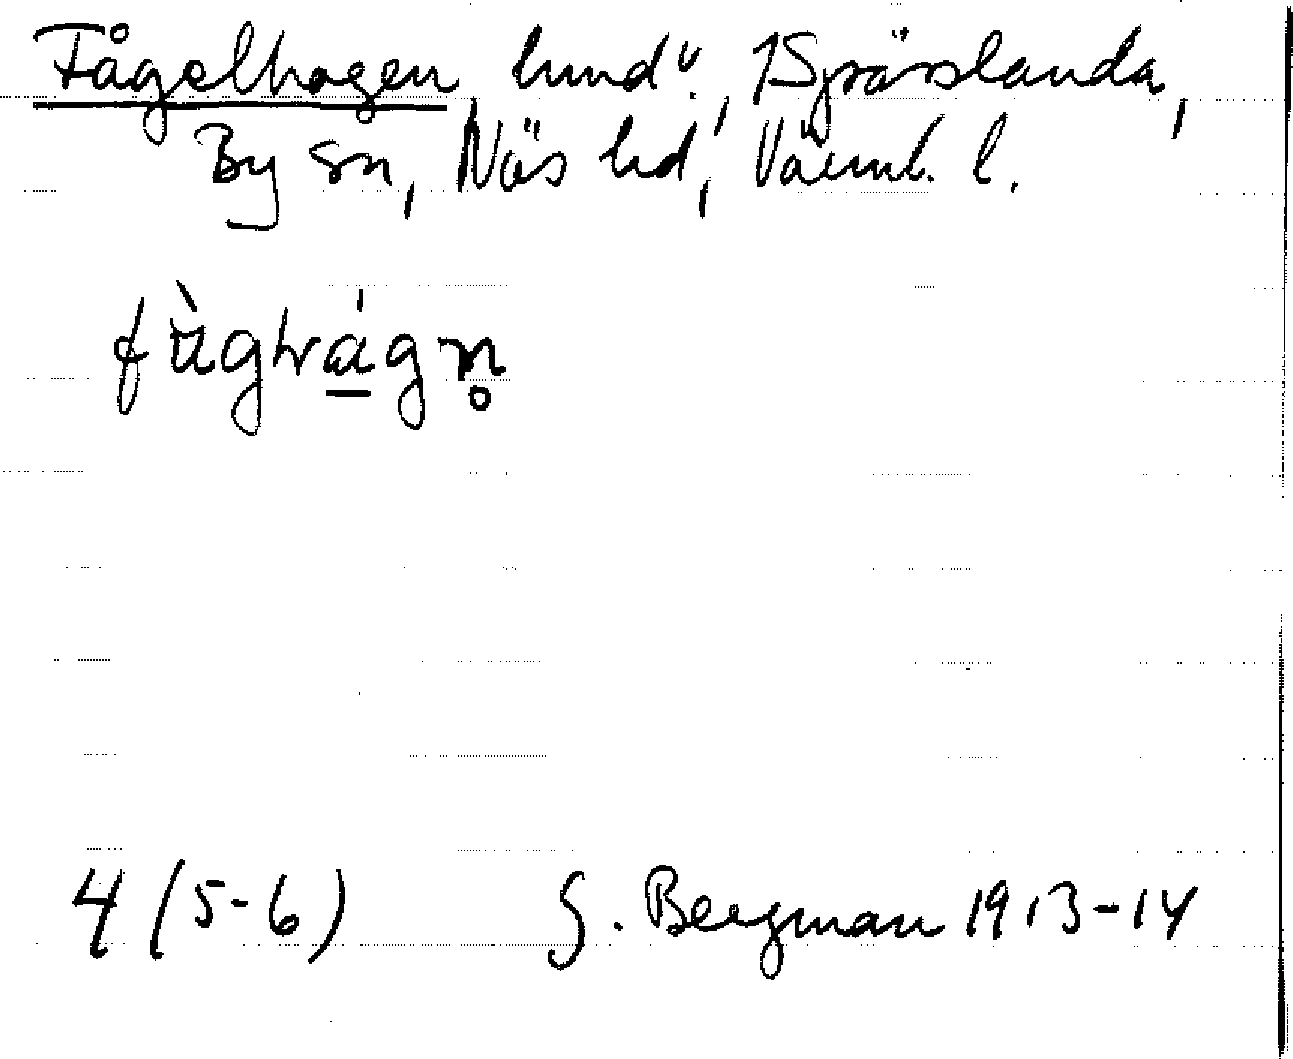 Fågelhagen lund ö., 1Sprässlanda,
By sn, Näs hd, Värml. l.
4 (5-6) G. Bergman 1913-14